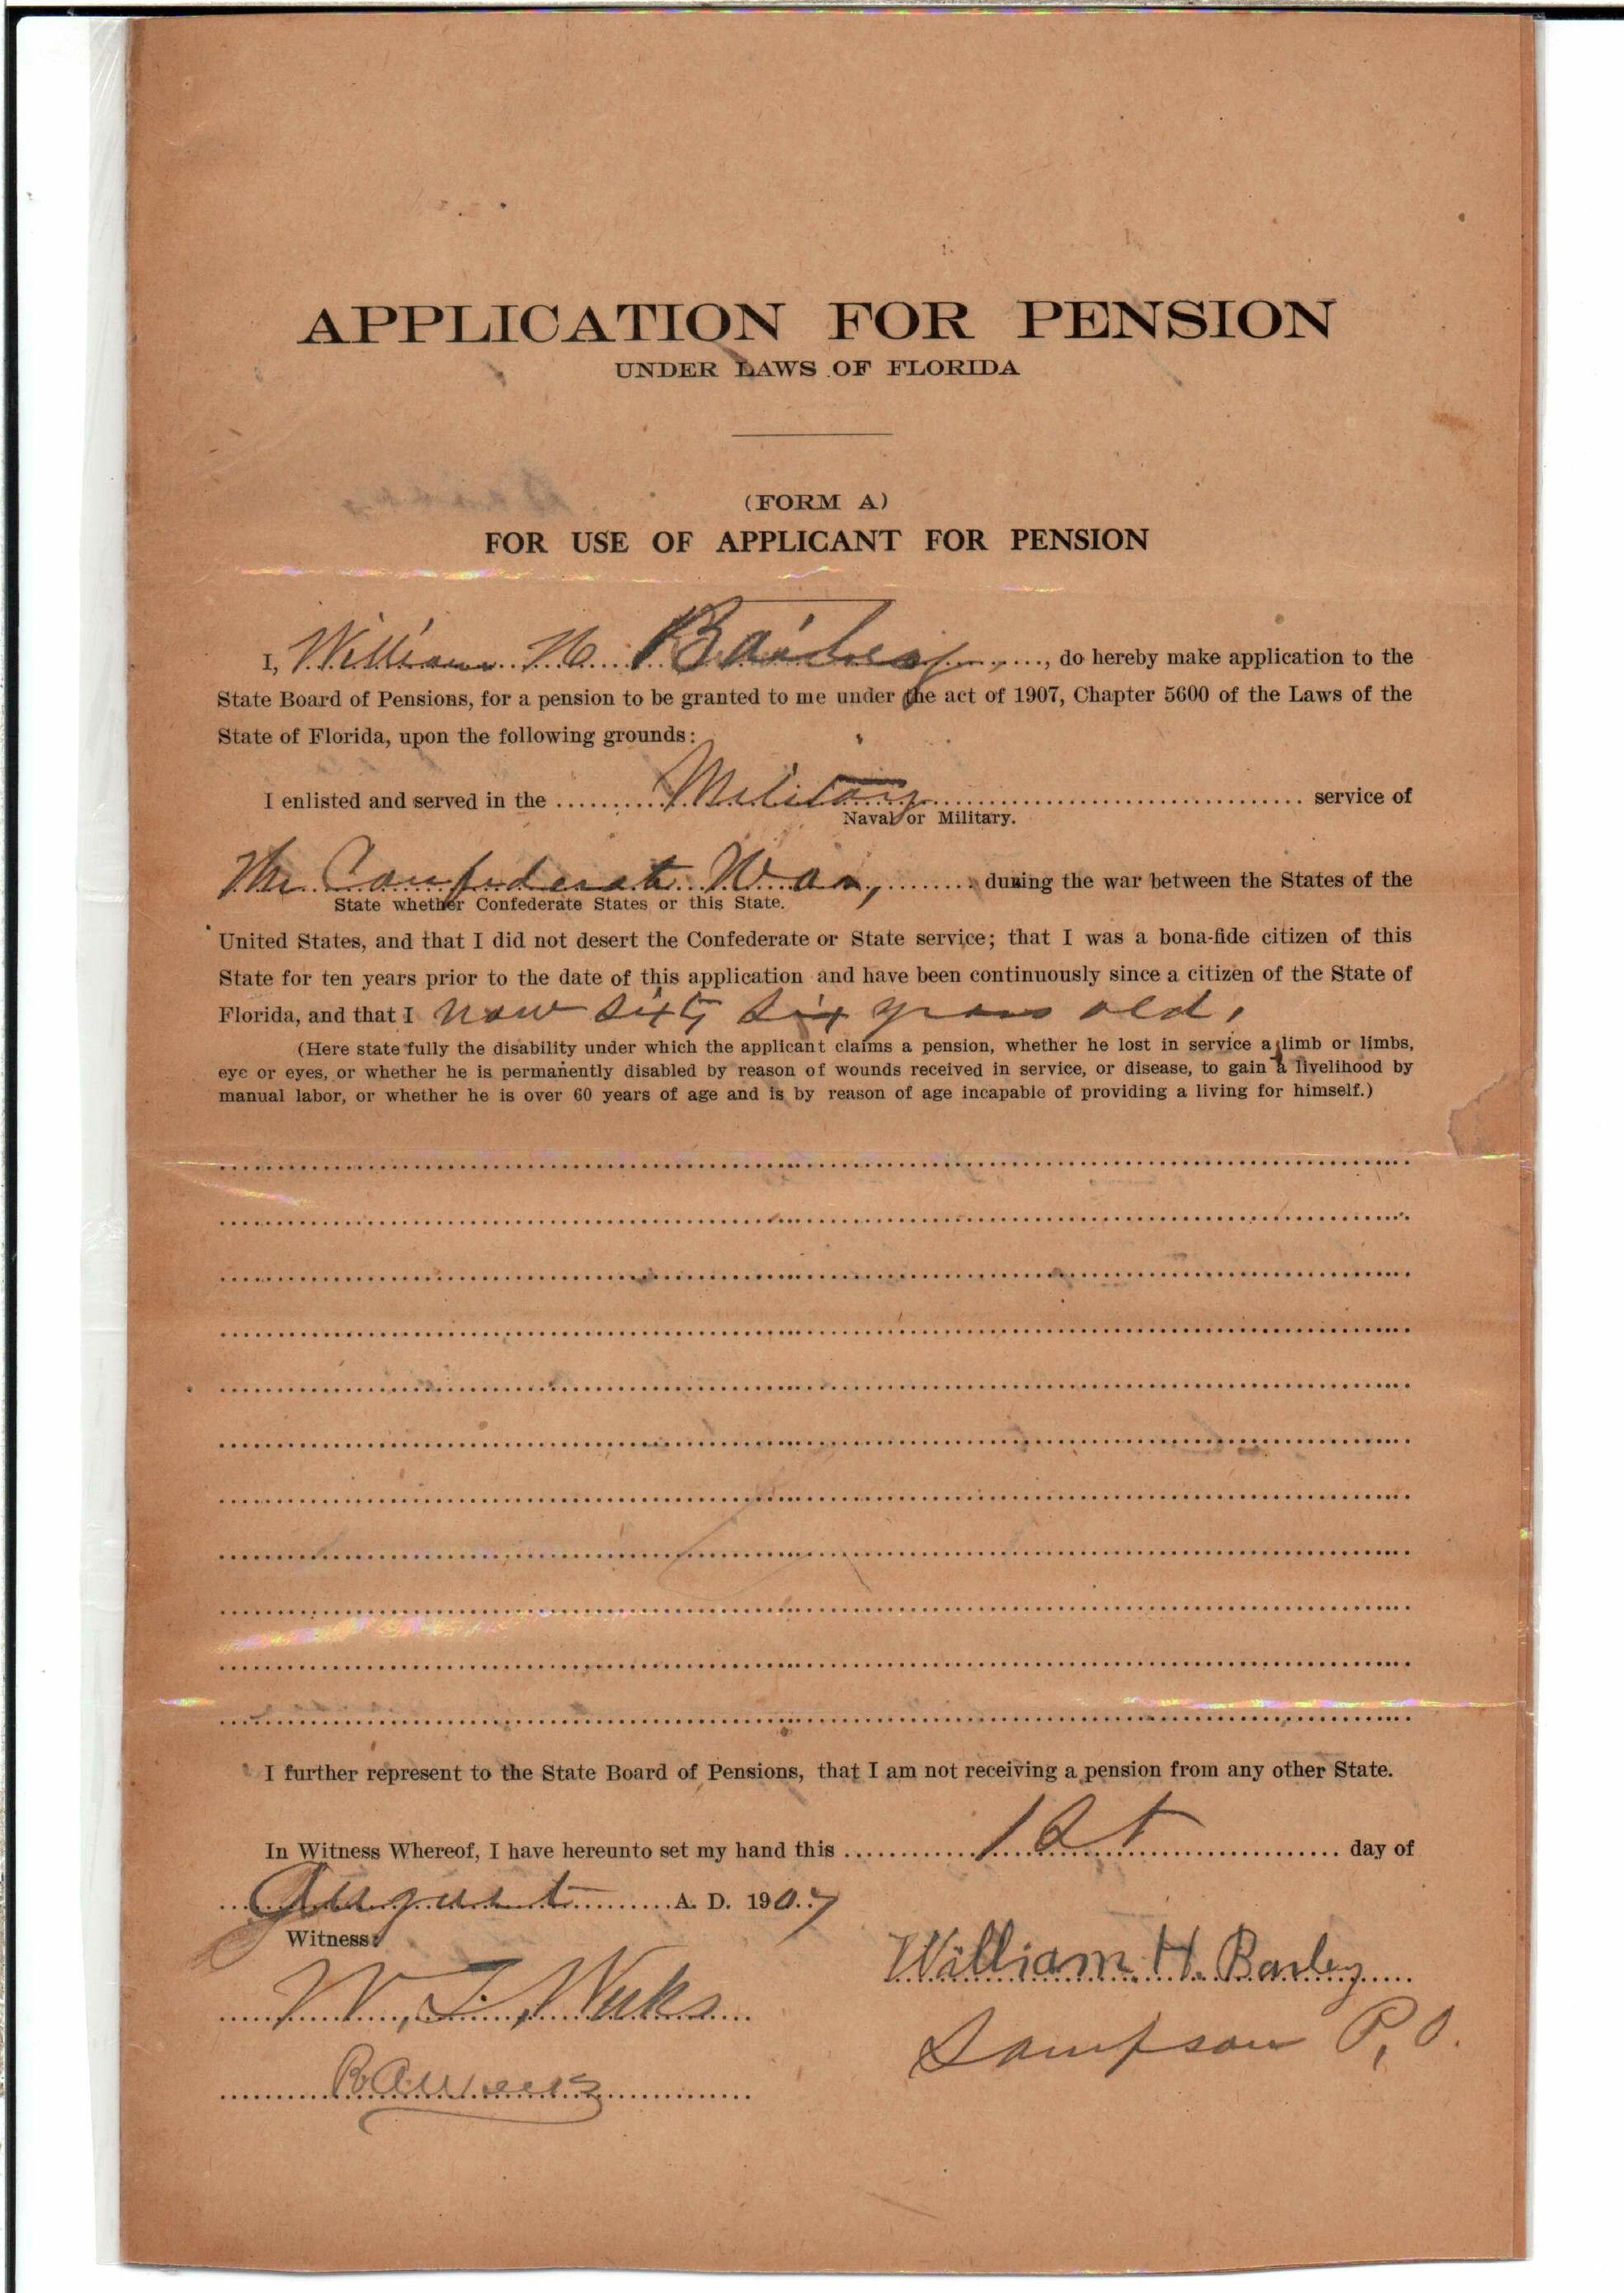 APPLICATION FOR PENSION
UNDER LAWS OF FLORIDA
(FORM A)
FOR USE OF APPLICANT FOR PENSION
I, William H. Barley, do hereby make application to the
State Board of Pensions, for a pension to be granted to me under the act of 1907, Chapter 5600 of the Laws of the
State of Florida, upon the following grounds:
I enlisted and served in the Military service of
Naval or Military.
The Confederate War, during the war between the States of the
State whether Confederate States or this State.
United States, and that I did not desert the Confederate or State service; that I was a bona-fide citizen of this
State for ten years prior to the date of this application and have been continuously since a citizen of the State of
Florida, and that I now sixty six years old,
(Here state fully the disability under which the applicant claims a pension, whether he lost in service a limb or limbs,
eye or eyes, or whether he is permanently disabled by reason of wounds received in service, or disease, to gain a livelihood by
manual labor, or whether he is over 60 years of age and is by reason of age incapable of providing a living for himself.)
I further represent to the State Board of Pensions, that I am not receiving a pension from any other State.
In Witness Whereof, I have hereunto set my hand this 1st day of
August A. D. 1907
Witness:
William. H. Barley
W. T. Weeks
Sampson P. O.